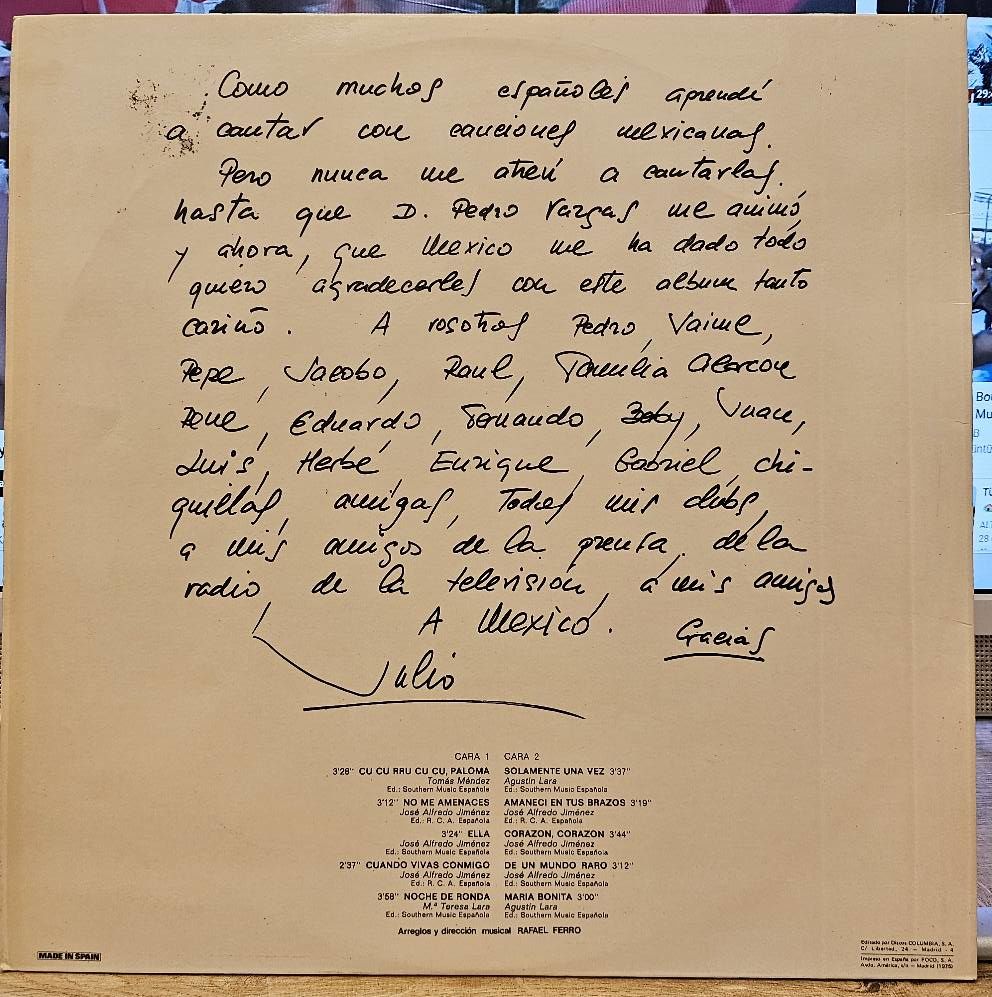 Como muchos españoles aprendí
a cantar con canciones mexicanas.
Pero nunca me atreví a cantarlas.
hasta que D. Pedro Vargas me animó,
y ahora, que Mexico me ha dado todo
quiero agradecerles con este album tanto
cariño. A vosotros Pedro, Jaime,
Pepe, Jacobo, Raul, Familia Alarcon
René, Eduardo, Fernando, Baby, Juan,
Luis, Herbé Enrique, Gabriel, chi-
quillas, amigas, Todos mis clubs,
a mis amigos de la prensa, de la
radio de la televisión, a mis amigos
A Mexico. Gracias
Julio
CARA 1
3'28" CU CU RRU CU CU, PALOMA
Tomás Méndez
Ed.: Southern Music Española
3'12" NO ME AMENACES
José Alfredo Jiménez
Ed.: R. C. A. Española
3'24" ELLA
José Alfredo Jiménez
Ed.: Southern Music Española
2'37" CUANDO VIVAS CONMIGO
José Alfredo Jiménez
Ed.: R. C. A. Española
3'58" NOCHE DE RONDA
M.ª Teresa Lara
Ed.: Southern Music Española
CARA 2
SOLAMENTE UNA VEZ 3'37"
Agustín Lara
Ed.: Southern Music Española
AMANECI EN TUS BRAZOS 3'19"
José Alfredo Jiménez
Ed.: R. C. A. Española
CORAZON, CORAZON 3'44"
José Alfredo Jiménez
Ed.: Southern Music Española
DE UN MUNDO RARO 3'12"
José Alfredo Jiménez
Ed.: Southern Music Española
MARIA BONITA 3'00"
Agustín Lara
Ed.: Southern Music Española
Arreglos y dirección musical RAFAEL FERRO
MADE IN SPAIN
Editado por Discos COLUMBIA, S. A.
C/ Libertad, 24 – Madrid - 4
Impreso en España por FOCO, S. A.
Avda. América, s/n – Madrid (1975)